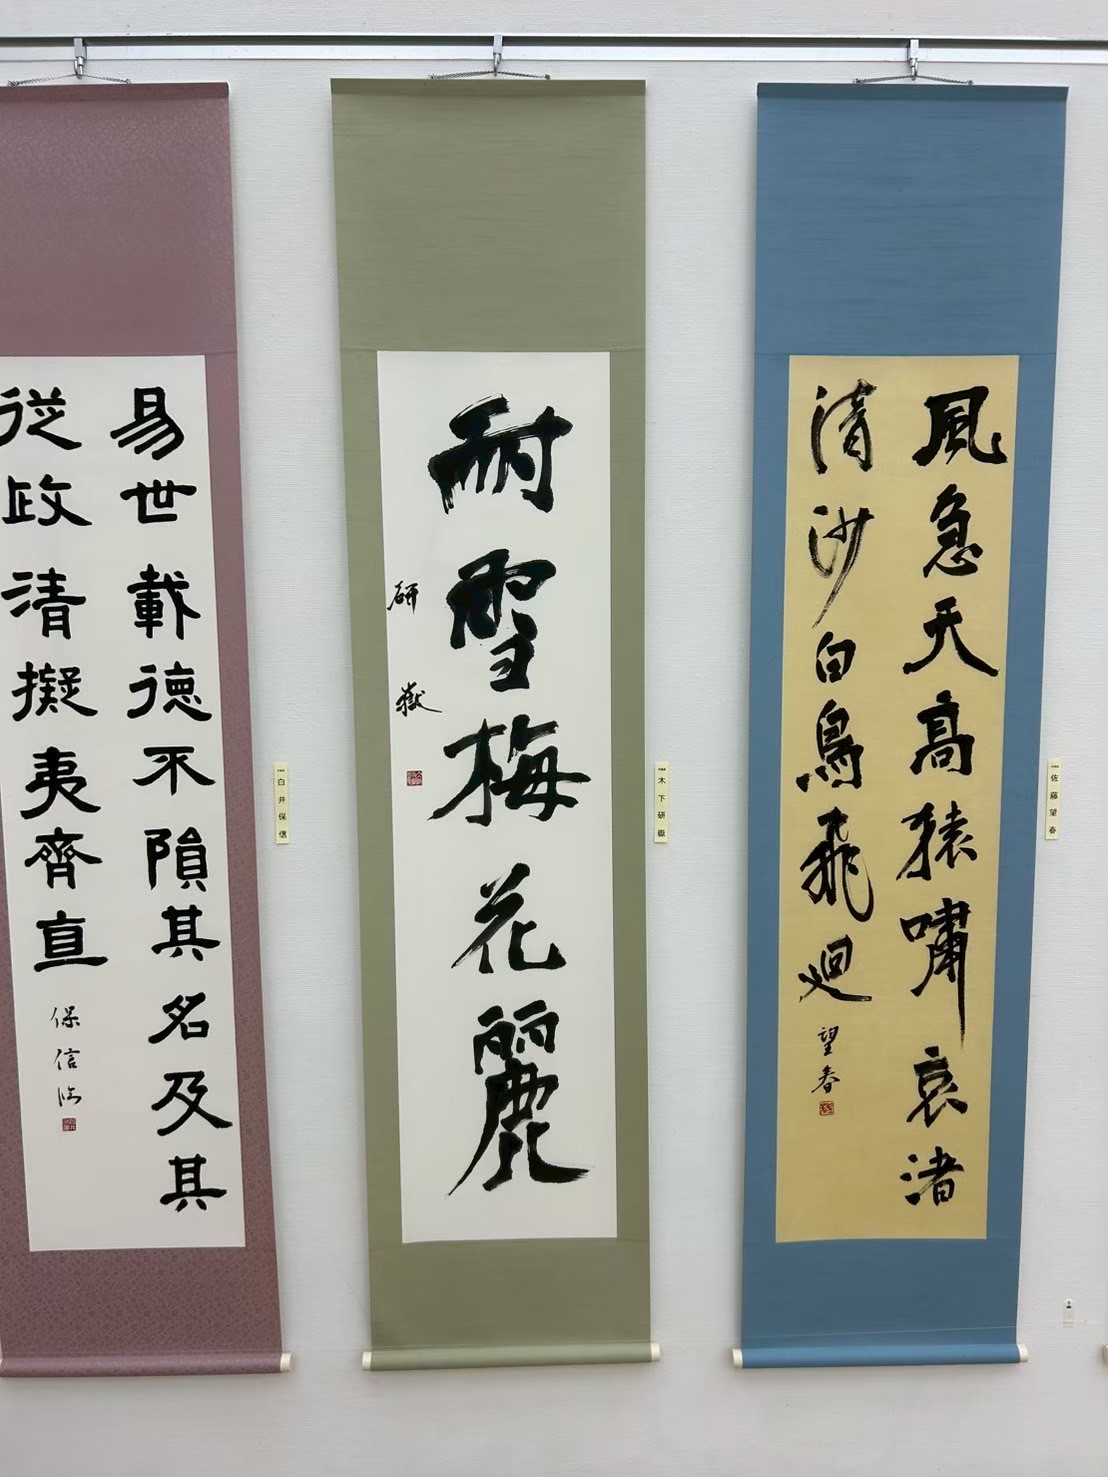 風急天高猿嘯哀渚
清沙白鳥飛廻
望春
佐藤望春
耐雪梅花麗
研嶽
木下研嶽
易世載德不隕其名及其
從政清擬夷齊直
保信臨
白井保信